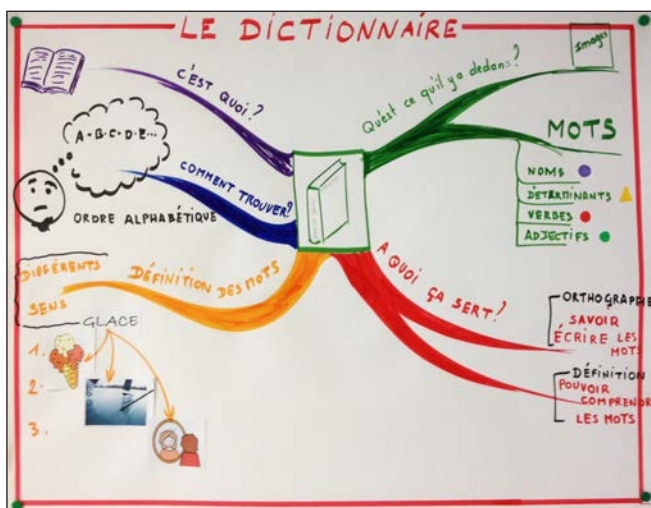 LE DICTIONNAIRE
C'EST QUOI?
A-B-C-D-E...
COMMENT TROUVER?
ORDRE ALPHABÉTIQUE
DÉFINITION DES MOTS
DIFFÉRENTS
SENS
GLACE
1.
2.
3.
Qu'est ce qu'il y a dedans?
Images
MOTS
NOMS
DÉTERMINANTS
VERBES
ADJECTIFS
A QUOI ÇA SERT?
ORTHOGRAPHE
SAVOIR
ÉCRIRE LES
MOTS
DÉFINITION
POUVOIR
COMPRENDRE
LES MOTS